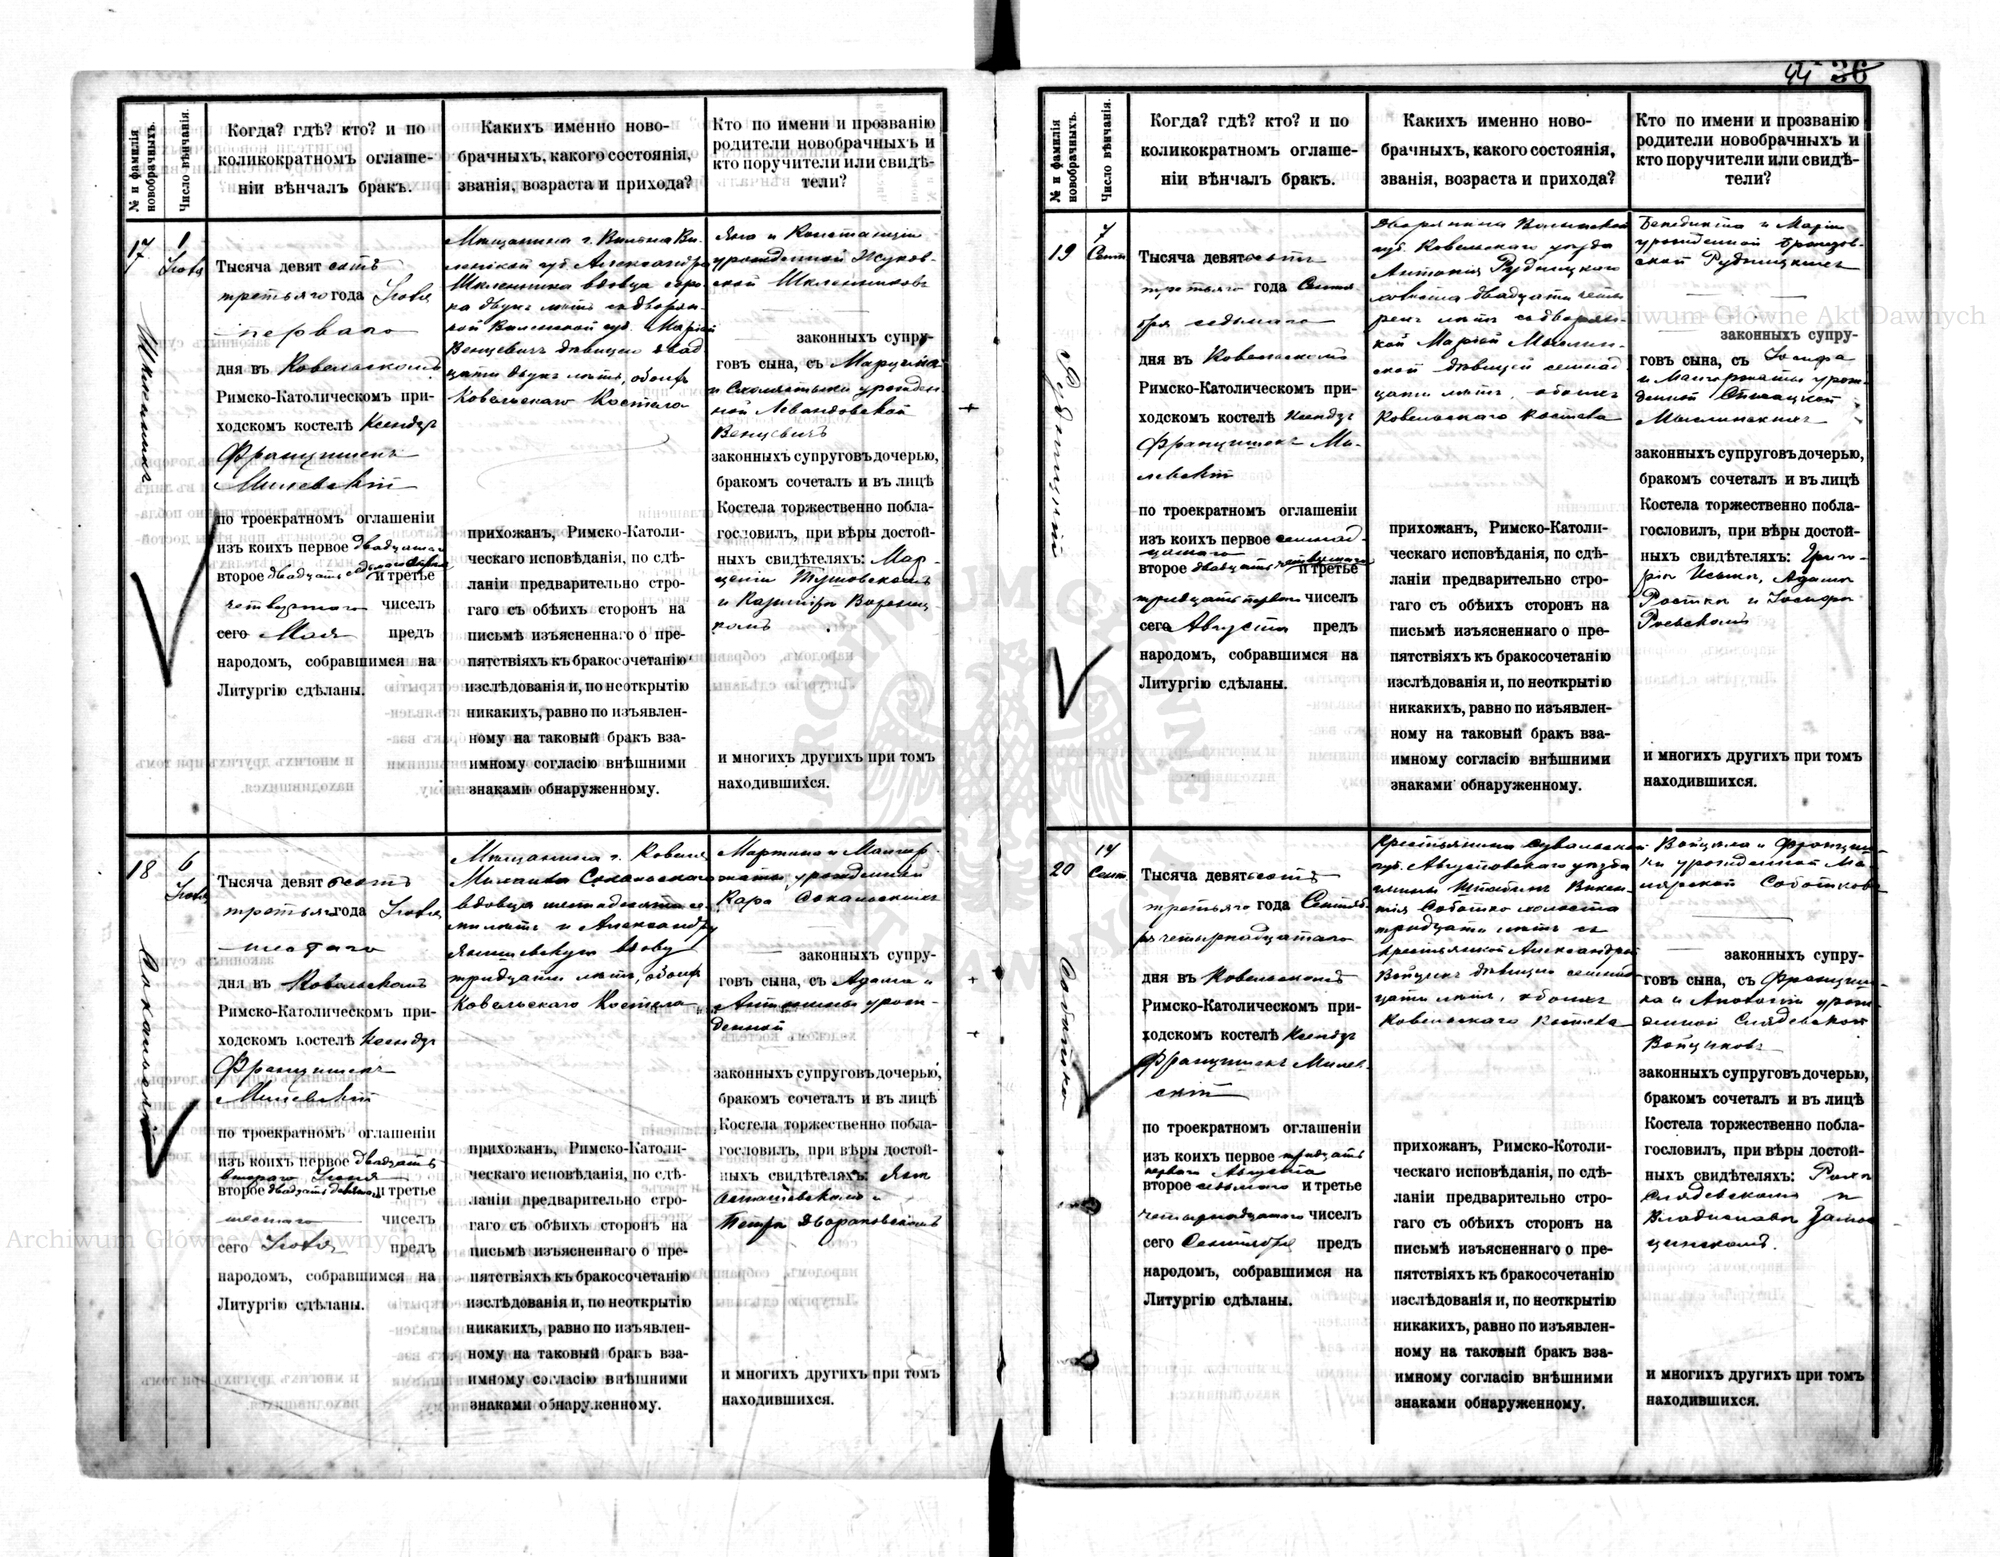 44 36
№ и фамилія новобрачныхъ.
Число вѣнчанія.
Когда? гдѣ? кто? и по
коликократномъ оглаше-
ніи вѣнчалъ бракъ.
Какихъ именно ново-
брачныхъ, какого состоянія,
званія, возраста и прихода?
Кто по имени и прозванію
родители новобрачныхъ и
кто поручители или свидѣ-
тели?
17
1
Тысяча девятсотъ
третьяго года
перваго
дня въ Ковельскомъ
Римско-Католическомъ при-
ходскомъ костелѣ Ксендзъ
Францишекъ
Милевскій
по троекратномъ оглашеніи
изъ коихъ первое
второе и третье
четвертаго чиселъ
сего Мая предъ
народомъ, собравшимся на
Литургію сдѣланы.
Мѣщанина г. Вильна Ви-
ленской губ. Александра
вдовца соро-
ка двухъ лѣтъ съ дворян-
кой Виленской губ. Маріей
Венцевичъ дѣвицею двад-
цати двухъ лѣтъ, обоихъ
Ковельскаго Костела
прихожанъ, Римско-Католи-
ческаго исповѣданія, по сдѣ-
ланіи предварительно стро-
гаго съ обѣихъ сторонъ на
письмѣ изъясненнаго о пре-
пятствіяхъ къ бракосочетанію
изслѣдованія и, по неоткрытію
никакихъ, равно по изъявлен-
ному на таковый бракъ вза-
имному согласію внѣшними
знаками обнаруженному.
Яна и Констанціи
урожденной Жуков-
ской
законныхъ супру-
говъ сына, съ
и Схоластыки урожден-
ной Левандовской
Венцевичъ
законныхъ супруговъ дочерью,
бракомъ сочеталъ и въ лицѣ
Костела торжественно побла-
гословилъ, при вѣры достой-
ныхъ свидѣтеляхъ: Мар-
и многихъ другихъ при томъ
находившихся.
18
6
Сокальскій
Тысяча девятсотъ
третьяго года
шестаго
дня въ Ковельскомъ
Римско-Католическомъ при-
ходскомъ костелѣ Ксендзъ
Францишекъ
Милевскій
по троекратномъ оглашеніи
изъ коихъ первое двадцать
втораго Іюня
второе двадцать девятаго и третье
шестаго чиселъ
сего предъ
народомъ, собравшимся на
Литургію сдѣланы.
Мѣщанина г. Ковеля
Сокальскаго
вдовца
лѣтъ и Александру
вдову
тридцати лѣтъ, обоихъ
Ковельскаго Костела
прихожанъ, Римско-Католи-
ческаго исповѣданія, по сдѣ-
ланіи предварительно стро-
гаго съ обѣихъ сторонъ на
письмѣ изъясненнаго о пре-
пятствіяхъ къ бракосочетанію
изслѣдованія и, по неоткрытію
никакихъ, равно по изъявлен-
ному на таковый бракъ вза-
имному согласію внѣшними
знаками обнаруженному.
Мартина и Малгор-
жаты урожденной
Кара Сокальскихъ
законныхъ супру-
говъ сына, съ Адама и
Антонины урож-
денной
законныхъ супруговъ дочерью,
бракомъ сочеталъ и въ лицѣ
Костела торжественно побла-
гословилъ, при вѣры достой-
ныхъ свидѣтеляхъ:
и многихъ другихъ при томъ
находившихся.
№ и фамилія новобрачныхъ.
Число вѣнчанія.
Когда? гдѣ? кто? и по
коликократномъ оглаше-
ніи вѣнчалъ бракъ.
Какихъ именно ново-
брачныхъ, какого состоянія,
званія, возраста и прихода?
Кто по имени и прозванію
родители новобрачныхъ и
кто поручители или свидѣ-
тели?
19
7
Сент
Рудницкій
Тысяча девятсотъ
третьяго года Сентя-
бря седьмаго
дня въ Ковельскомъ
Римско-Католическомъ при-
ходскомъ костелѣ Ксендзъ
Францишекъ Ми-
левскій
по троекратномъ оглашеніи
изъ коихъ первое семнад-
цатаго
второе двадцать четвертаго и третье
тридцать перваго чиселъ
сего Августа предъ
народомъ, собравшимся на
Литургію сдѣланы.
Дворянина Волынской
губ. Ковельскаго уѣзда
Антонія Рудницкаго
холоста двадцати четы-
рехъ лѣтъ съ дворян-
кой Маріей Мыслин-
ской дѣвицей семнад-
цати лѣтъ, обоихъ
Ковельскаго костела
прихожанъ, Римско-Католи-
ческаго исповѣданія, по сдѣ-
ланіи предварительно стро-
гаго съ обѣихъ сторонъ на
письмѣ изъясненнаго о пре-
пятствіяхъ къ бракосочетанію
изслѣдованія и, по неоткрытію
никакихъ, равно по изъявлен-
ному на таковый бракъ вза-
имному согласію внѣшними
знаками обнаруженному.
Бенедикта и Маріи
урожденной
Рудницкихъ
законныхъ супру-
говъ сына, съ Іосифа
и Малгоржаты урож-
денной
Мыслинскихъ
законныхъ супруговъ дочерью,
бракомъ сочеталъ и въ лицѣ
Костела торжественно побла-
гословилъ, при вѣры достой-
ныхъ свидѣтеляхъ: Григо-
рія Адама
и Іосифа
и многихъ другихъ при томъ
находившихся.
20
14
Сент.
Соботко
Тысяча девятсотъ
третьяго года Сентяб-
ря четырнадцатаго
дня въ Ковельскомъ
Римско-Католическомъ при-
ходскомъ костелѣ Ксендзъ
Францишекъ Милев-
скій
по троекратномъ оглашеніи
изъ коихъ первое тридцать
перваго Августа
второе седьмаго и третье
четырнадцатаго чиселъ
сего Сентября предъ
народомъ, собравшимся на
Литургію сдѣланы.
Крестьянина Сувалкской
губ. Августовскаго уѣзда
гмины Штабинъ Викен-
тія Соботко холоста
тридцати лѣтъ съ
крестьянкой Александрой
Войцикъ дѣвицею
цати лѣтъ, обоихъ
Ковельскаго костела
прихожанъ, Римско-Котоли-
ческаго исповѣданія, по сдѣ-
ланіи предварительно стро-
гаго съ обѣихъ сторонъ на
письмѣ изъясненнаго о пре-
пятствіяхъ къ бракосочетанію
изслѣдованія и, по неоткрытію
никакихъ, равно по изъявлен-
ному на таковый бракъ вза-
имному согласію внѣшними
знаками обнаруженному.
и Францишки
урожденной
законныхъ супру-
говъ сына, съ Францишка
и урож-
денной
Войциковъ
законныхъ супруговъ дочерью,
бракомъ сочеталъ и въ лицѣ
Костела торжественно побла-
гословилъ, при вѣры достой-
ныхъ свидѣтеляхъ:
Владислава
и многихъ другихъ при томъ
находившихся.
Archiwum Główne Akt Dawnych
Archiwum Główne Akt Dawnych
ARCHIWUM GŁÓWNE AKT DAWNYCH